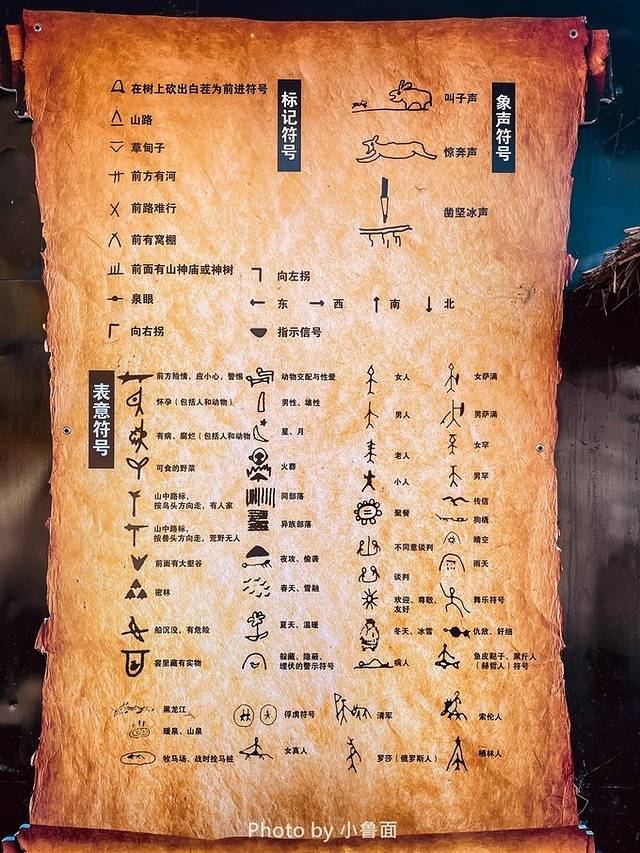 标记符号
在树上砍出白茬为前进符号
山路
草甸子
前方有河
前路难行
前有窝棚
前面有山神庙或神树
泉眼
向右拐
向左拐
东 西 南 北
指示信号
象声符号
叫子声
惊奔声
凿坚冰声
表意符号
前方险情，应小心，警惕
怀孕（包括人和动物）
有病、腐烂（包括人和动物
可食的野菜
山中路标，
按鸟头方向走，有人家
山中路标，
按兽头方向走，荒野无人
前面有大壑谷
密林
船沉没，有危险
窖里藏有实物
动物交配与性爱
男性、雄性
星、月
火葬
同部落
异族部落
夜攻、偷袭
春天、雪融
夏天、温暖
躲藏、隐蔽、
埋伏的警示符号
女人
男人
老人
小人
聚餐
不同意谈判
谈判
欢迎、尊敬、
友好
冬天、冰雪
病人
女萨满
男萨满
女罕
男罕
传信
狗橇
晴空
雨天
舞乐符号
仇敌、奸细
鱼皮鞑子、黑斤人
（赫哲人）符号
黑龙江
暖泉、山泉
牧马场、战时拴马桩
俘虏符号
女真人
清军
罗莎（俄罗斯人）
索伦人
栖林人
Photo by 小鲁面